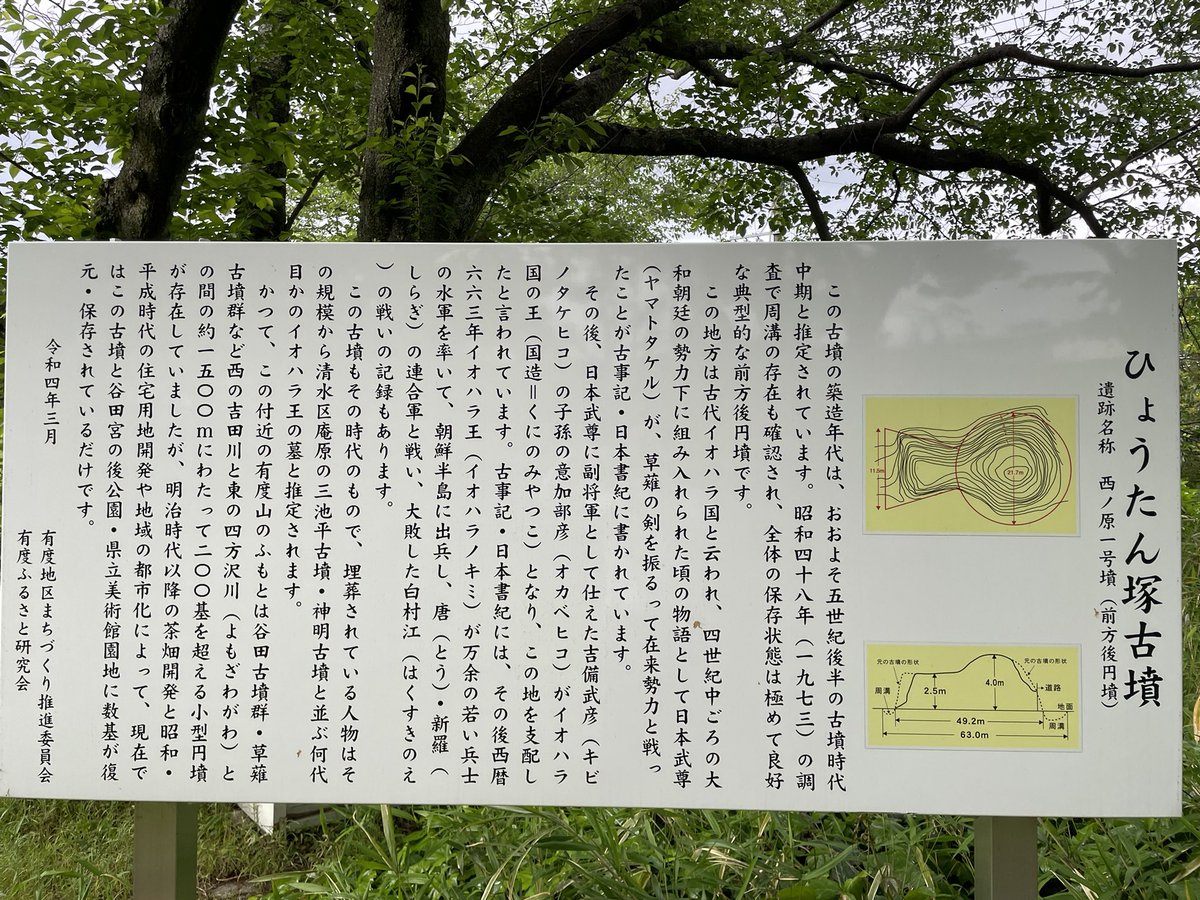 ひょうたん塚古墳
遺跡名称　西ノ原一号墳（前方後円墳）
11.5m
21.7m
元の古墳の形状
元の古墳の形状
周溝
2.5m
4.0m
道路
地面
49.2m
周溝
63.0m
この古墳の築造年代は、おおよそ五世紀後半の古墳時代
中期と推定されています。昭和四十八年（一九七三）の調
査で周溝の存在も確認され、全体の保存状態は極めて良好
な典型的な前方後円墳です。
この地方は古代イオハラ国と云われ、四世紀中ごろの大
和朝廷の勢力下に組み入れられた頃の物語として日本武尊
（ヤマトタケル）が、草薙の剣を振るって在来勢力と戦っ
たことが古事記・日本書紀に書かれています。
その後、日本武尊に副将軍として仕えた吉備武彦（キビ
ノタケヒコ）の子孫の意加部彦（オカベヒコ）がイオハラ
国の王（国造＝くにのみやつこ）となり、この地を支配し
たと言われています。古事記・日本書紀には、その後西暦
六六三年イオハラ王（イオハラノキミ）が万余の若い兵士
の水軍を率いて、朝鮮半島に出兵し、唐（とう）・新羅（
しらぎ）の連合軍と戦い、大敗した白村江（はくすきのえ
）の戦いの記録もあります。
この古墳もその時代のもので、埋葬されている人物はそ
の規模から清水区庵原の三池平古墳・神明古墳と並ぶ何代
目かのイオハラ王の墓と推定されます。
かつて、この付近の有度山のふもとは谷田古墳群・草薙
古墳群など西の吉田川と東の四方沢川（よもざわがわ）と
の間の約一五〇〇ｍにわたって二〇〇基を超える小型円墳
が存在していましたが、明治時代以降の茶畑開発と昭和・
平成時代の住宅用地開発や地域の都市化によって、現在で
はこの古墳と谷田宮の後公園・県立美術館園地に数基が復
元・保存されているだけです。
令和四年三月
有度地区まちづくり推進委員会
有度ふるさと研究会